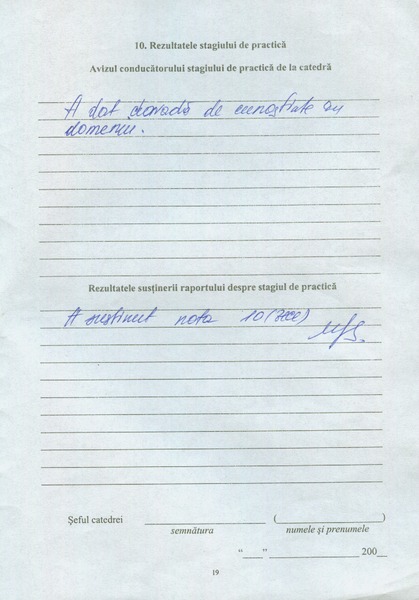 10. Rezultatele stagiului de practică
Avizul conducătorului stagiului de practică de la catedră
A dat dovadă de cunoștințe în
domeniu.
Rezultatele susținerii raportului despre stagiul de practică
A susținut nota 10 (zece)
Șeful catedrei ____________ (____________)
semnătura numele și prenumele
“___” ____________ 200__
19